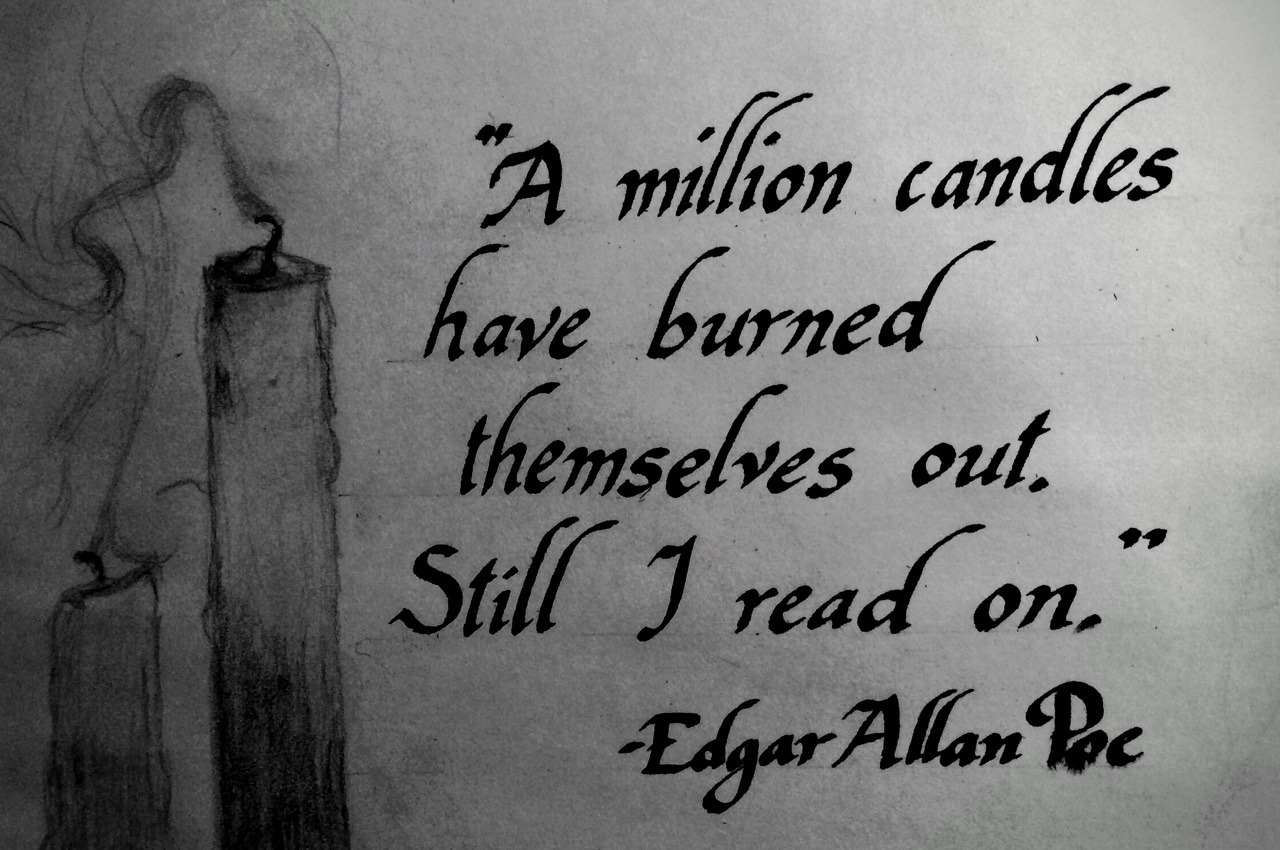 "A million candles
have burned
themselves out.
Still I read on."
-Edgar Allan Poe